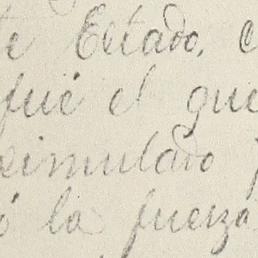 te Estado, c
fué el que
simulado p
ó la fuerza